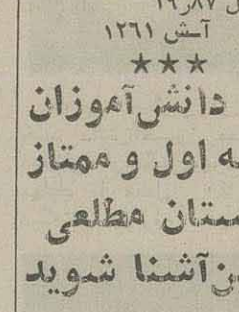 ل ۱۶٫۸۷
آ‌ش ۱۲۶۱
★★★
دانش‌آموزان
ه اول و ممتاز
ستان مطلعی
ن آشنا شوید